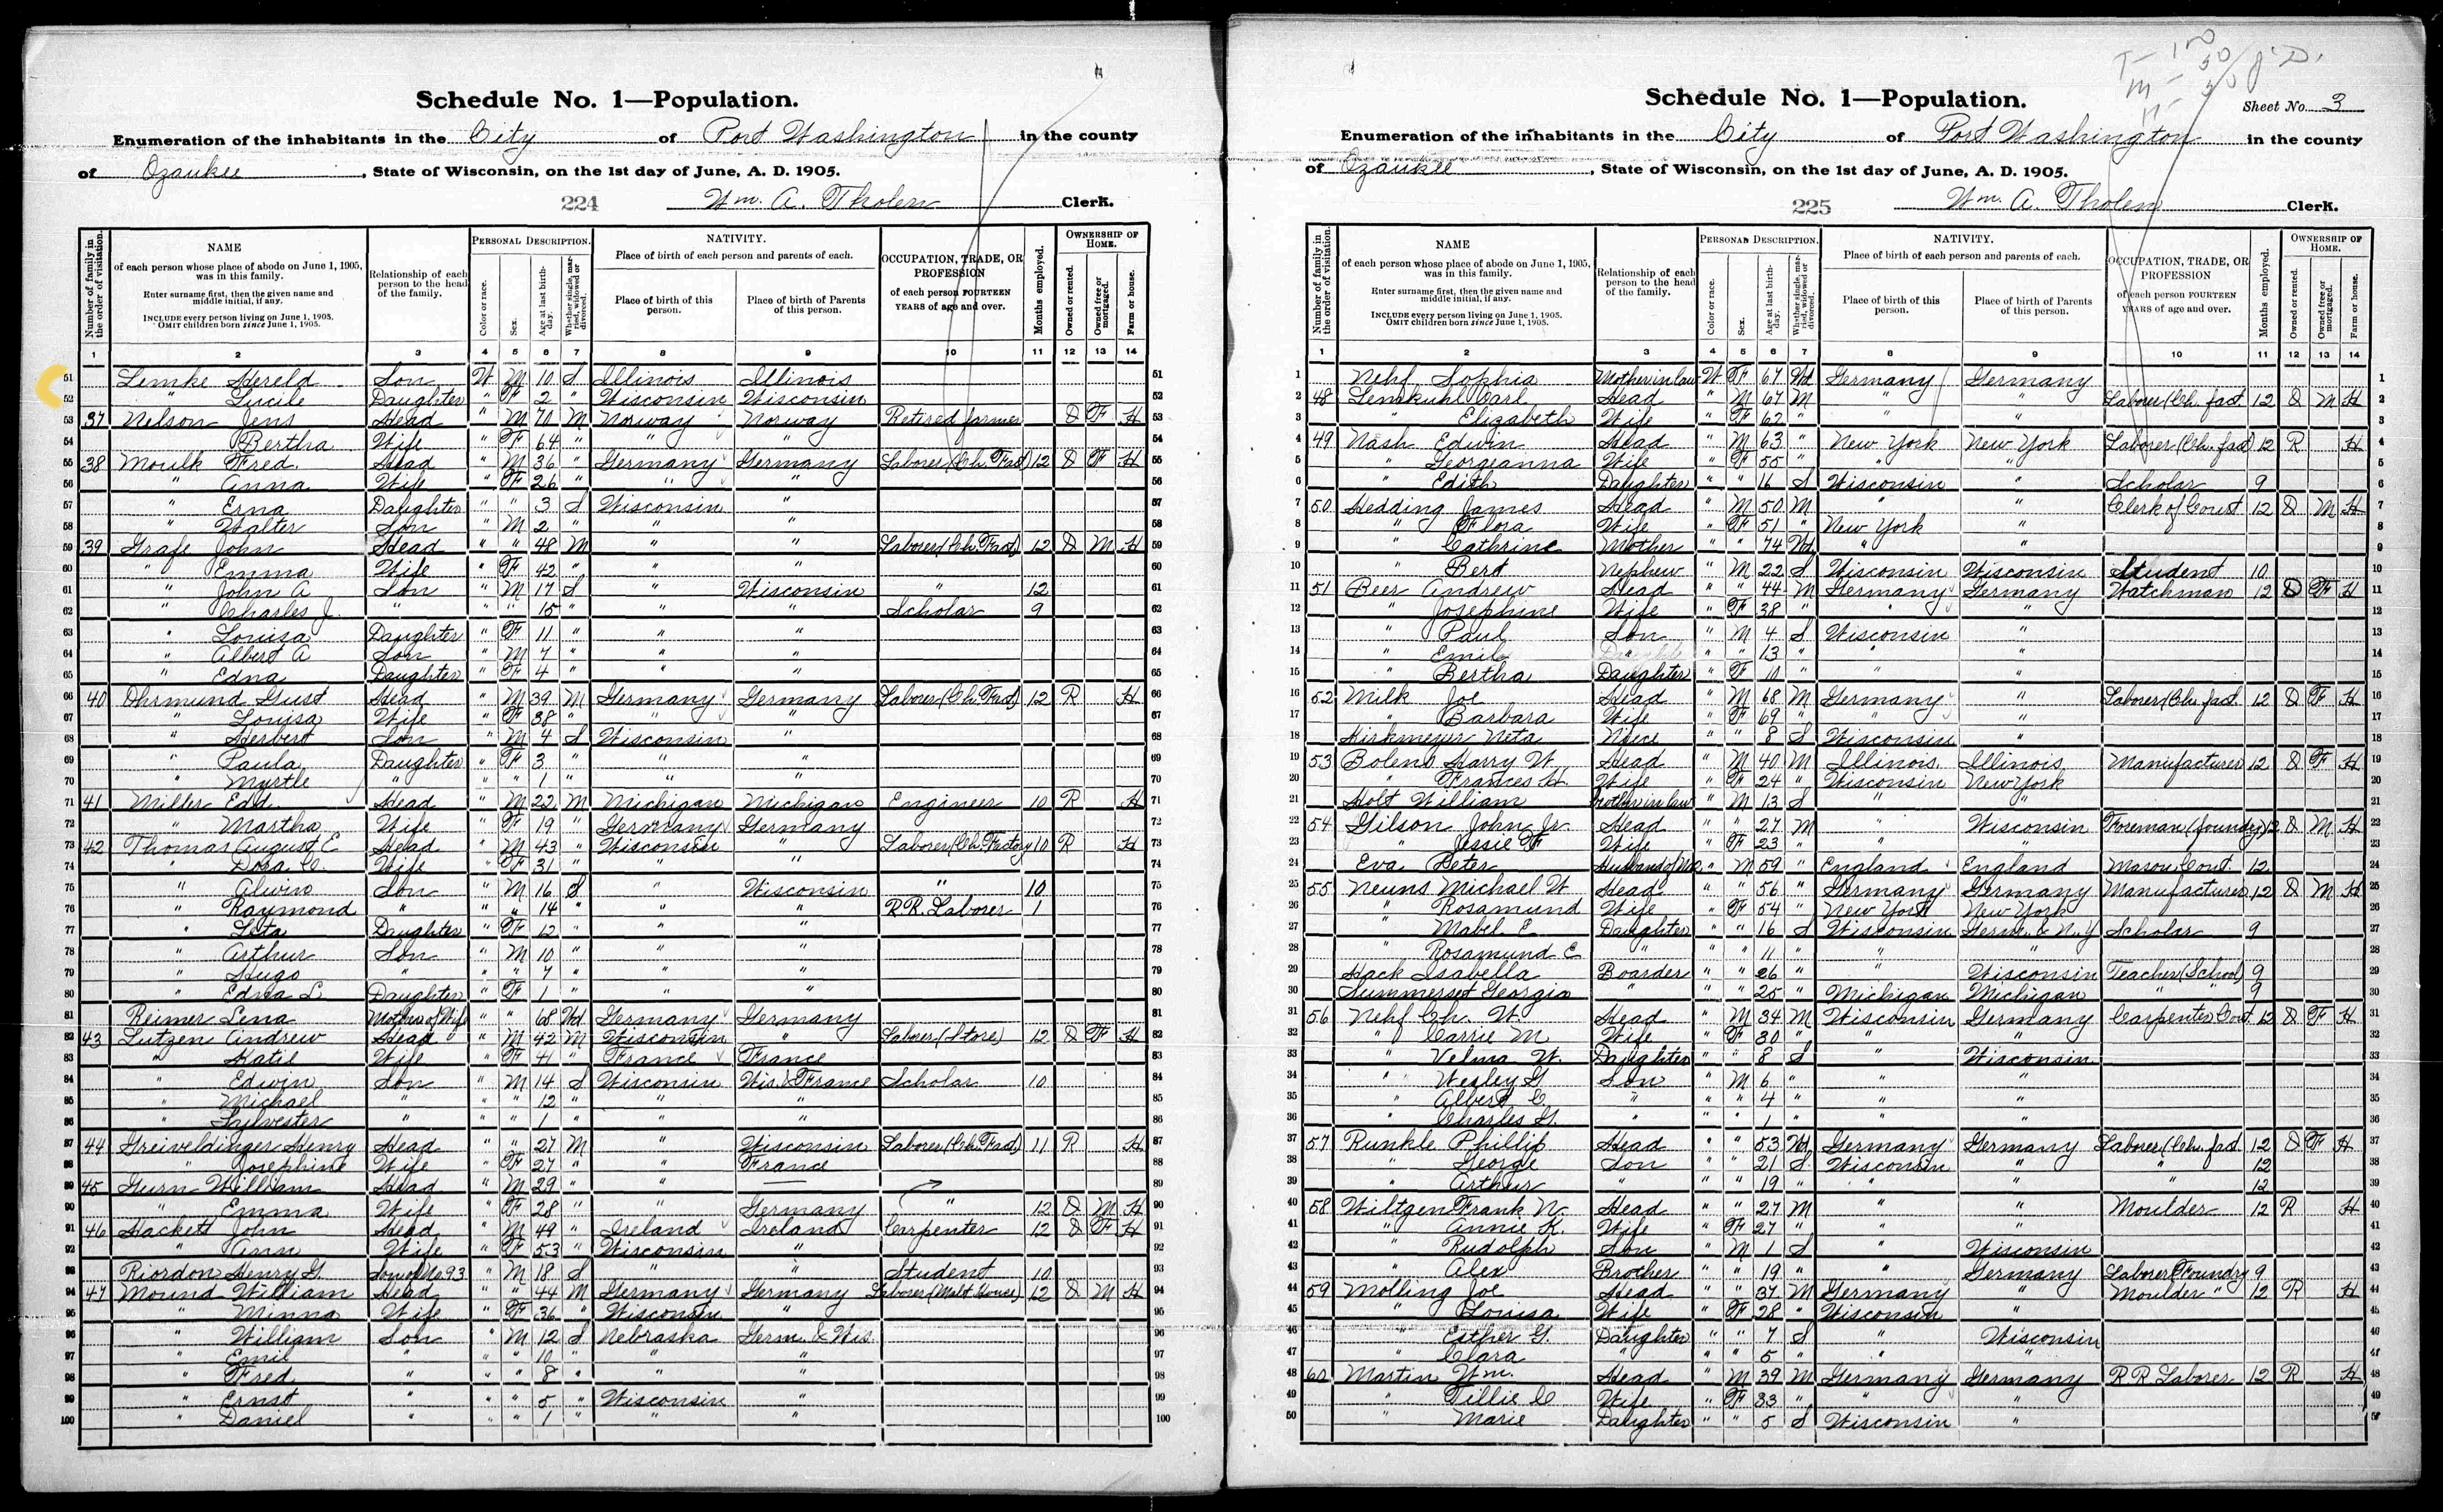 Schedule No. 1—Population.
Enumeration of the inhabitants in the City of Port Washington in the county
of Ozaukee, State of Wisconsin, on the 1st day of June, A. D. 1905.
224 Wm. A. Tholen Clerk.
Number of family in the order of visitation.
NAME
of each person whose place of abode on June 1, 1905, was in this family.
Enter surname first, then the given name and middle initial, if any.
INCLUDE every person living on June 1, 1905.
OMIT children born since June 1, 1905.
Relationship of each person to the head of the family.
PERSONAL DESCRIPTION.
Color or race.
Sex.
Age at last birthday.
Whether single, married, widowed or divorced.
NATIVITY.
Place of birth of each person and parents of each.
Place of birth of this person.
Place of birth of Parents of this person.
OCCUPATION, TRADE, OR PROFESSION
of each person FOURTEEN YEARS of age and over.
Months employed.
OWNERSHIP OF HOME.
Owned or rented.
Owned free or mortgaged.
Farm or house.
1 2 3 4 5 6 7 8 9 10 11 12 13 14
51 Lemke Hereld Son W M 10 S Illinois Illinois 51
52 " Lucile Daughter " F 2 " Wisconsin Wisconsin 52
53 37 Nelson Jens Head " M 70 M Norway Norway Retired farmer O F H 53
54 " Bertha Wife " F 64 " " " 54
55 38 Moulk Fred Head " M 36 " Germany Germany Laborer (Ch. Fact) 12 O F H 55
56 " Anna Wife " F 26 " " " 56
57 " Erna Daughter " " 3 S Wisconsin " 57
58 " Walter Son " M 2 " " " 58
59 39 Grafe John Head " " 48 M " " Laborer (Ch. Fact) 12 O M H 59
60 " Emma Wife " F 42 " " " 60
61 " John A Son " M 17 S " Wisconsin " 12 61
62 " Charles J. " " " 15 " " " Scholar 9 62
63 " Louisa Daughter " F 11 " " " 63
64 " Albert A Son " M 7 " " " 64
65 " Edna Daughter " F 4 " " " 65
66 40 Ohrmund Gust Head " M 39 M Germany Germany Laborer (Ch. Fact) 12 R H 66
67 " Louisa Wife " F 38 " " " 67
68 " Herbert Son " M 4 S Wisconsin " 68
69 " Paula Daughter " F 3 " " " 69
70 " Myrtle " " " 1 " " " 70
71 41 Miller Edd. Head " M 22 M Michigan Michigan Engineer 10 R H 71
72 " Martha Wife " F 19 " Germany Germany 72
73 42 Thomas August E Head " M 43 " Wisconsin " Laborer (Ch. Factory 10 R H 73
74 " Dora C. Wife " F 31 " " " 74
75 " Alwin Son " M 16 S " Wisconsin " 10 75
76 " Raymond " " " 14 " " " R.R. Laborer 1 76
77 " Leta Daughter " F 12 " " " 77
78 " Arthur Son " M 10 " " " 78
79 " Hugo " " " 7 " " " 79
80 " Edna L Daughter " F 1 " " " 80
81 Reimer Lena Mother of Wife " " 68 Wd Germany Germany 81
82 43 Lutzen Andrew Head " M 42 M Wisconsin " Laborer (Store) 12 O F H 82
83 " Katie Wife " F 41 " France France 83
84 " Edwin Son " M 14 S Wisconsin Wis. & France Scholar 10 84
85 " Michael " " " 12 " " " 85
86 " Sylvester " " " 1 " " " 86
87 44 Greiveldinger Henry Head " " 27 M " Wisconsin Laborer (Ch. Fact) 11 R H 87
88 " Josephine Wife " F 27 " " France 88
89 45 Gurn William Head " M 29 " " — 89
90 " Emma Wife " F 28 " " Germany " 12 O M H 90
91 46 Hackett John Head " M 49 " Ireland Ireland Carpenter 12 O F H 91
92 " Ann Wife " F 53 " Wisconsin " 92
93 Riordon Henry G. Son of No. 93 " M 18 S " " Student 10 93
94 47 Mound William Head " " 44 M Germany Germany Laborer (Malt House) 12 O M H 94
95 " Minna Wife " F 36 " Wisconsin " 95
96 " William Son " M 12 S Nebraska Germ. & Wis. 96
97 " Emil " " " 10 " " " 97
98 " Fred " " " 8 " " " 98
99 " Ernst " " " 5 " Wisconsin " 99
100 " Daniel " " " 1 " " " 100
Sheet No. 3
Schedule No. 1—Population.
Enumeration of the inhabitants in the City of Port Washington in the county
of Ozaukee, State of Wisconsin, on the 1st day of June, A. D. 1905.
225 Wm. A. Tholen Clerk.
Number of family in the order of visitation.
NAME
of each person whose place of abode on June 1, 1905, was in this family.
Enter surname first, then the given name and middle initial, if any.
INCLUDE every person living on June 1, 1905.
OMIT children born since June 1, 1905.
Relationship of each person to the head of the family.
PERSONAL DESCRIPTION.
Color or race.
Sex.
Age at last birthday.
Whether single, married, widowed or divorced.
NATIVITY.
Place of birth of each person and parents of each.
Place of birth of this person.
Place of birth of Parents of this person.
OCCUPATION, TRADE, OR PROFESSION
of each person FOURTEEN YEARS of age and over.
Months employed.
OWNERSHIP OF HOME.
Owned or rented.
Owned free or mortgaged.
Farm or house.
1 2 3 4 5 6 7 8 9 10 11 12 13 14
1 Nehf Sophia Mother in law W F 67 Wd Germany Germany 1
2 48 Lemkuhl Carl Head " M 67 M " " Laborer (Ch. fact. 12 O M H 2
3 " Elizabeth Wife " F 62 " " " 3
4 49 Nash Edwin Head " M 63 " New York New York Laborer (Ch. fact) 12 R H 4
5 " Georgeanna Wife " F 55 " " " 5
6 " Edith Daughter " " 16 S Wisconsin " Scholar 9 6
7 50 Hedding James Head " M 50 M " " Clerk of Court 12 O M H 7
8 " Flora Wife " F 51 " New York " 8
9 " Cathrine Mother " " 74 Wd " " 9
10 " Bert Nephew " M 22 S Wisconsin Wisconsin Student 10 10
11 51 Beer Andrew Head " " 44 M Germany Germany Watchman 12 O F H 11
12 " Josephine Wife " F 38 " " " 12
13 " Paul Son " M 4 S Wisconsin " 13
14 " Emil " " " 13 " " " 14
15 " Bertha Daughter " F 10 " " " 15
16 52 Milk Joe Head " M 68 M Germany " Laborer (Ch. fact. 12 O F H 16
17 " Barbara Wife " F 69 " " " 17
18 Hirkmeyer Neta Niece " " 8 S Wisconsin " 18
19 53 Bolens Harry W. Head " M 40 M Illinois Illinois Manufacturer 12 O F H 19
20 " Frances H Wife " F 24 " Wisconsin New York 20
21 Holt William Brother in law " M 13 S " " 21
22 54 Gilson John Jr. Head " " 27 M " Wisconsin Foreman (foundry) 12 O M H 22
23 " Jessie F Wife " F 23 " " " 23
24 Eva Peter " M 59 " England England Mason Cont. 12 24
25 55 Neuns Michael W Head " " 56 " Germany Germany Manufacturer 12 O M H 25
26 " Rosamund Wife " F 54 " New York New York 26
27 " Mabel E Daughter " " 16 S Wisconsin Germ. & N.Y Scholar 9 27
28 " Rosamund C " " " 11 " " " 28
29 Hack Isabella Boarder " " 26 " " Wisconsin Teacher (School) 9 29
30 Summerset Georgia " " " 25 " Michigan Michigan " " 9 30
31 56 Nehf Ch. W. Head " M 34 M Wisconsin Germany Carpenter Cont. 12 O F H 31
32 " Carrie M Wife " F 30 " " " 32
33 " Velma W. Daughter " " 8 S " Wisconsin 33
34 " Wesley G. Son " M 6 " " " 34
35 " Albert C. " " " 4 " " " 35
36 " Charles G. " " " 1 " " " 36
37 57 Runkle Phillip Head " " 53 Wd Germany Germany Laborer (Ch. fact. 12 O F H 37
38 " George Son " " 21 S Wisconsin " " 12 38
39 " Arthur " " " 19 " " " " 12 39
40 58 Wiltgen Frank N. Head " " 27 M " " Moulder 12 R H 40
41 " Annie K. Wife " F 27 " " " 41
42 " Rudolph Son " M 1 S " Wisconsin 42
43 " Alex Brother " " 19 " " Germany Laborer Foundry 9 43
44 59 Molling Joe Head " " 37 M Germany " Moulder " 12 R H 44
45 " Louisa Wife " F 28 " Wisconsin " 45
46 " Esther G. Daughter " " 7 S " Wisconsin 46
47 " Clara " " " 5 " " " 47
48 60 Martin Wm. Head " M 39 M Germany Germany R R Laborer 12 R H 48
49 " Tillie C Wife " F 33 " " " 49
50 " Marie Daughter " " 5 S Wisconsin " 50